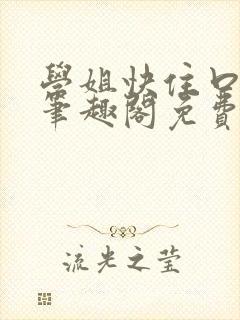 學姐快住口
筆趣閣免費
流光之莹